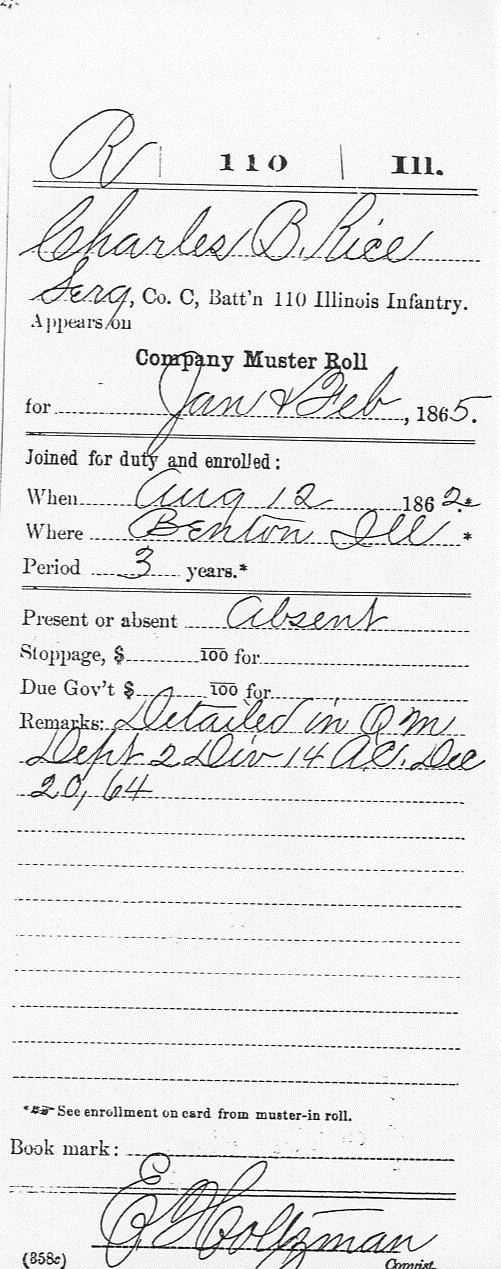 R | 110 | Ill.
Charles B. Rice
Serg, Co. C, Batt'n 110 Illinois Infantry.
Appears on
Company Muster Roll
for Jan & Feb, 1865.
Joined for duty and enrolled:
When Aug 12 1862.*
Where Benton Ill *
Period 3 years.*
Present or absent Absent
Stoppage, $ 100 for
Due Gov't $ 100 for
Remarks: Detailed in Q M
Dept 2 Div 14 A.C. Dec
20, 64
*☞ See enrollment on card from muster-in roll.
Book mark:
Holtzman
(358c) Copyist.